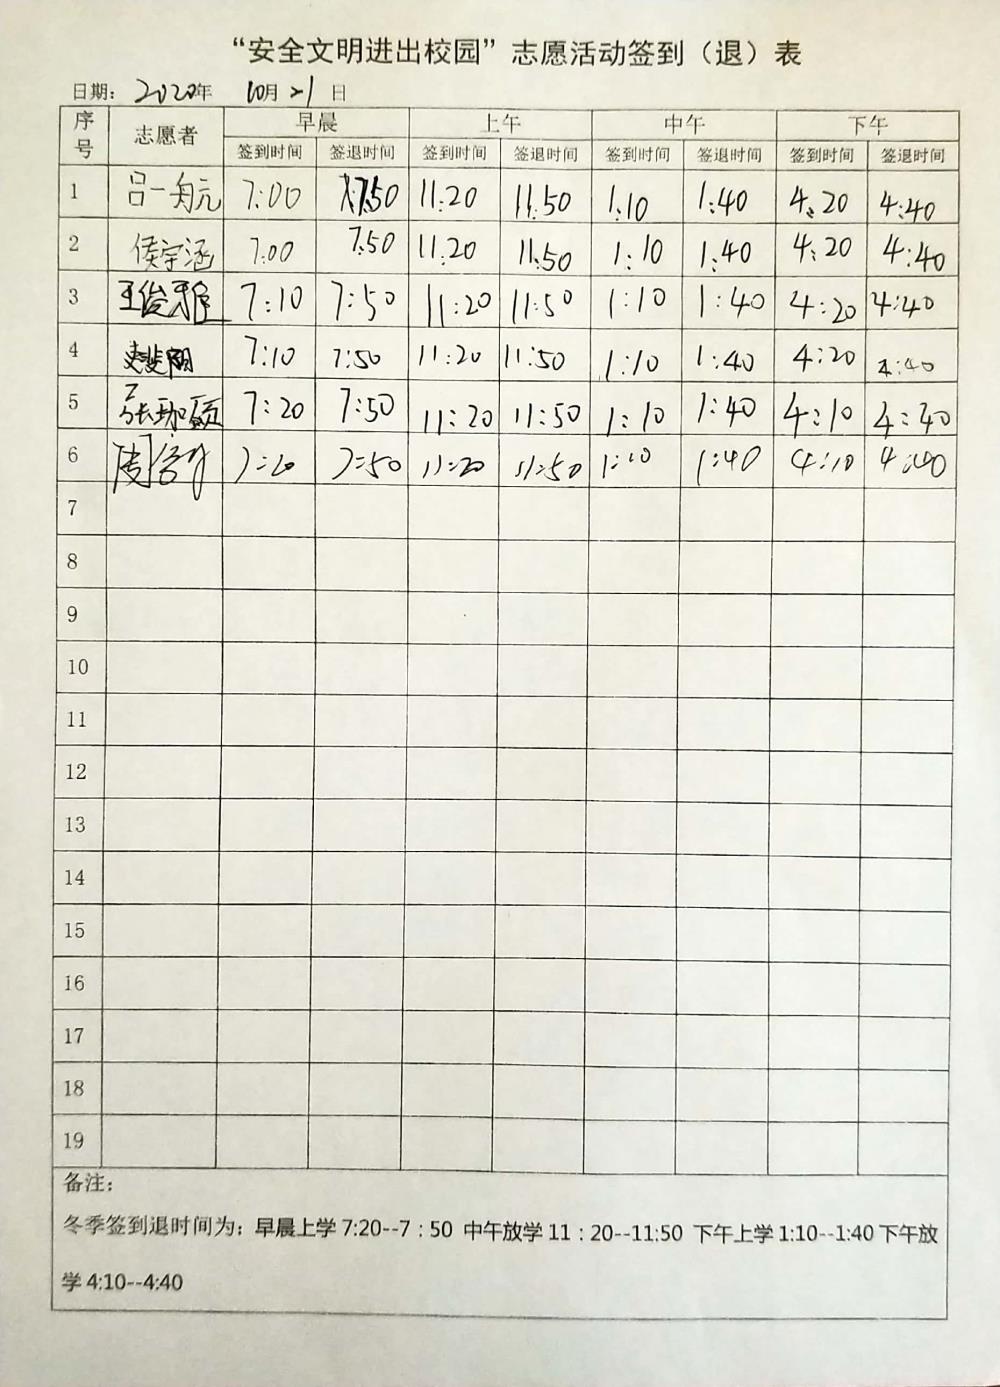 “安全文明进出校园”志愿活动签到（退）表
日期： 2020年 10月21日
序号 志愿者 早晨 上午 中午 下午
签到时间 签退时间 签到时间 签退时间 签到时间 签退时间 签到时间 签退时间
1 吕一 7:00 7:50 11:20 11:50 1:10 1:40 4:20 4:40
2 侯宇涵 7:00 7:50 11:20 11:50 1:10 1:40 4:20 4:40
3 王俊雅 7:10 7:50 11:20 11:50 1:10 1:40 4:20 4:40
4 7:10 7:50 11:20 11:50 1:10 1:40 4:20 4:40
5 张珈硕 7:20 7:50 11:20 11:50 1:10 1:40 4:10 4:40
6 周 7:20 7:50 11:20 11:50 1:10 1:40 4:10 4:40
7
8
9
10
11
12
13
14
15
16
17
18
19
备注：
冬季签到退时间为：早晨上学7:20--7：50 中午放学11：20--11:50 下午上学1:10--1:40下午放
学4:10--4:40